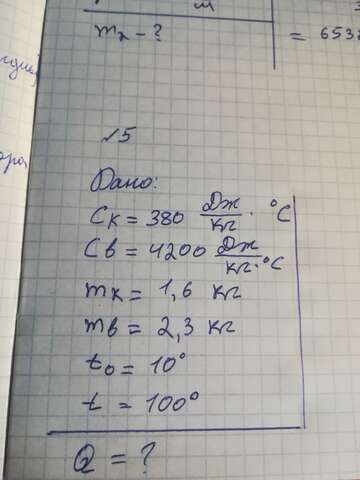 м
mл - ?
= 653
№5
Дано:
Cк = 380 Дж/кг · °C
Cв = 4200 Дж/кг·°C
mк = 1,6 кг
mв = 2,3 кг
t₀ = 10°
t = 100°
Q = ?